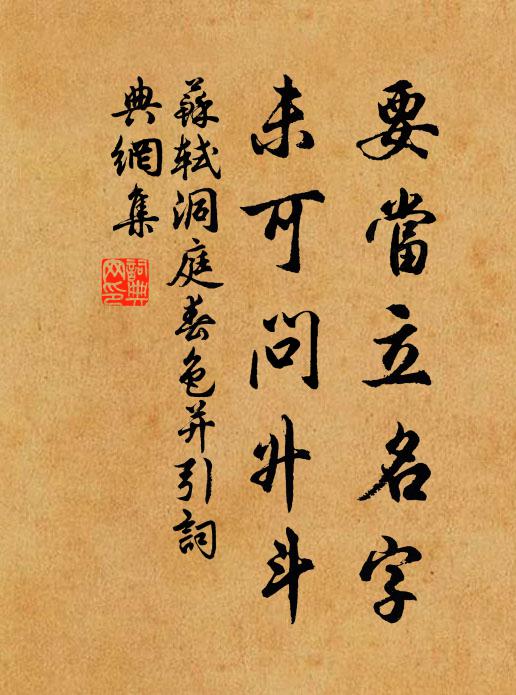 要當立名字
未可問升斗
蘇軾洞庭春色并引詞
典網集
詞典網印